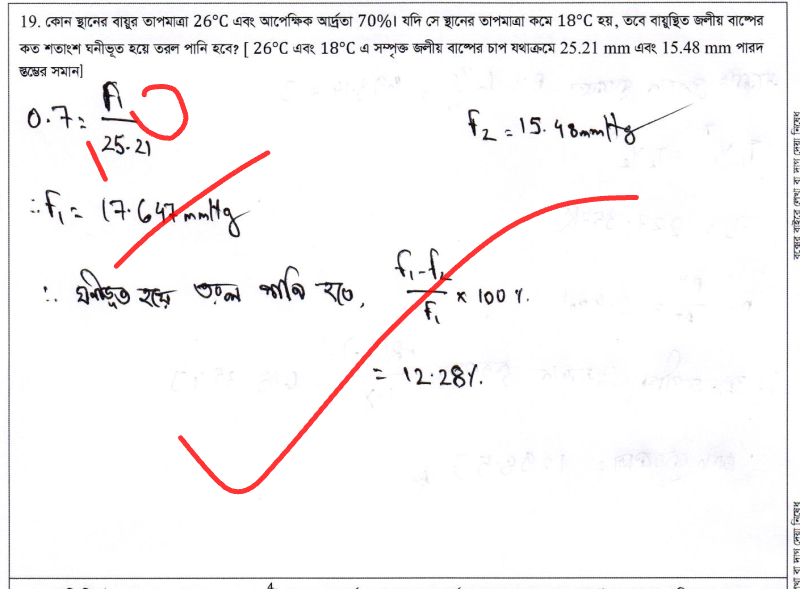 19. কোন স্থানের বায়ুর তাপমাত্রা 26°C এবং আপেক্ষিক আর্দ্রতা 70%। যদি সে স্থানের তাপমাত্রা কমে 18°C হয়, তবে বায়ুস্থিত জলীয় বাষ্পের
কত শতাংশ ঘনীভূত হয়ে তরল পানি হবে? [ 26°C এবং 18°C এ সম্পৃক্ত জলীয় বাষ্পের চাপ যথাক্রমে 25.21 mm এবং 15.48 mm পারদ
স্তম্ভের সমান]
0.7 = f₁ / 25.21
f₂ = 15.48mmHg
∴ f₁ = 17.647 mmHg
∴ ঘনীভূত হয়ে তরল পানি হবে, (f₁-f₂) / f₁ × 100%.
= 12.28%.